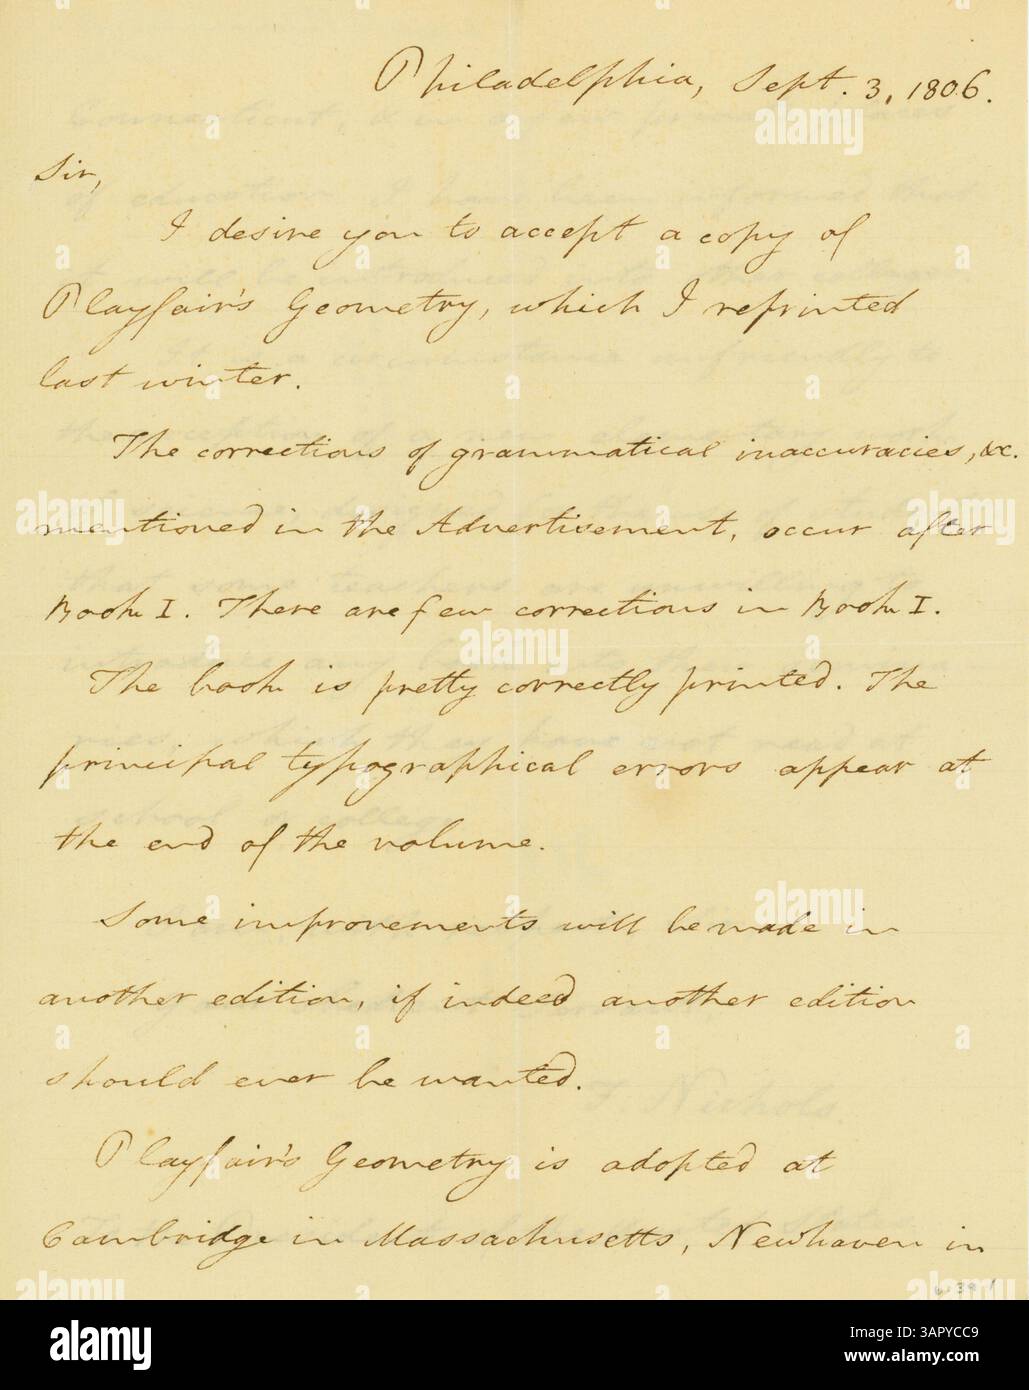 Philadelphia, Sept. 3, 1806.
Sir,
I desire you to accept a copy of
Playfair's Geometry, which I reprinted
last winter.
The corrections of grammatical inaccuracies, &c.
mentioned in the Advertisement, occur after
Book I. There are few corrections in Book I.
The book is pretty correctly printed. The
principal typographical errors appear at
the end of the volume.
Some improvements will be made in
another edition, if indeed another edition
should ever be wanted.
Playfair's Geometry is adopted at
Cambridge in Massachusetts, Newhaven in
alamy
Image ID: 3APYCC9
www.alamy.com